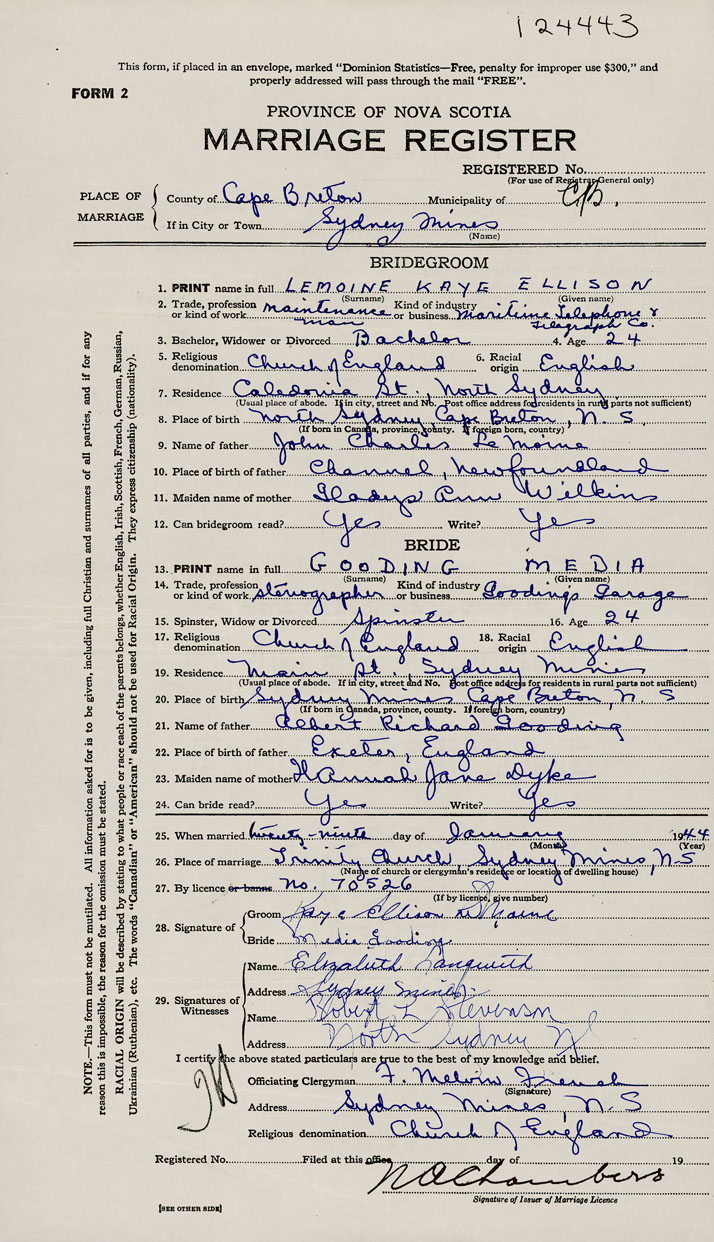 124443
This form, if placed in an envelope, marked “Dominion Statistics—Free, penalty for improper use $300,” and
properly addressed will pass through the mail “FREE”.
FORM 2
PROVINCE OF NOVA SCOTIA
MARRIAGE REGISTER
REGISTERED No.
(For use of Registrar General only)
PLACE OF MARRIAGE
County of Cape Breton Municipality of C.B.
If in City or Town Sydney Mines
(Name)
BRIDEGROOM
1. PRINT name in full LEMOINE KAYE ELLISON
(Surname) (Given name)
2. Trade, profession or kind of work maintenance man Kind of industry or business Maritime Telephone & Telegraph Co.
3. Bachelor, Widower or Divorced Bachelor 4. Age 24
5. Religious denomination Church of England 6. Racial origin English
7. Residence Caledonia St., North Sydney
(Usual place of abode. If in city, street and No. Post office address for residents in rural parts not sufficient)
8. Place of birth North Sydney, Cape Breton, N. S.
(If born in Canada, province, county. If foreign born, country)
9. Name of father John Charles Le Moine
10. Place of birth of father Channel, Newfoundland
11. Maiden name of mother Gladys Ann Wilkins
12. Can bridegroom read? Yes Write? Yes
BRIDE
13. PRINT name in full GOODING MEDIA
(Surname) (Given name)
14. Trade, profession or kind of work stenographer Kind of industry or business Gooding's Garage
15. Spinster, Widow or Divorced Spinster 16. Age 24
17. Religious denomination Church of England 18. Racial origin English
19. Residence Main St., Sydney Mines
(Usual place of abode. If in city, street and No. Post office address for residents in rural parts not sufficient)
20. Place of birth Sydney Mines Cape Breton, N. S
(If born in Canada, province, county. If foreign born, country)
21. Name of father Albert Richard Gooding
22. Place of birth of father Exeter, England
23. Maiden name of mother Hannah Jane Dyke
24. Can bride read? Yes Write? Yes
25. When married twenty-ninth day of January 1944
(Month) (Year)
26. Place of marriage Trinity Church, Sydney Mines, N.S
(Name of church or clergyman's residence or location of dwelling house)
27. By licence or banns No. 70526
(If by licence, give number)
28. Signature of
Groom Kaye Ellison LeMoine
Bride Media Gooding
29. Signatures of Witnesses
Name Elizabeth Langwith
Address Sydney Mines
Name Robert L Stevenson
Address North Sydney NS
I certify the above stated particulars are true to the best of my knowledge and belief.
Officiating Clergyman F. Melvin French
(Signature)
Address Sydney Mines, N.S
Religious denomination Church of England
Registered No. Filed at this office day of 19
Chambers
Signature of Issuer of Marriage Licence
[SEE OTHER SIDE]
NOTE.—This form must not be mutilated. All information asked for is to be given, including full Christian and surnames of all parties, and if for any
reason this is impossible, the reason for the omission must be stated.
RACIAL ORIGIN will be described by stating to what people or race each of the parents belongs, whether English, Irish, Scottish, French, German, Russian,
Ukrainian (Ruthenian), etc. The words “Canadian” or “American” should not be used for Racial Origin. They express citizenship (nationality).